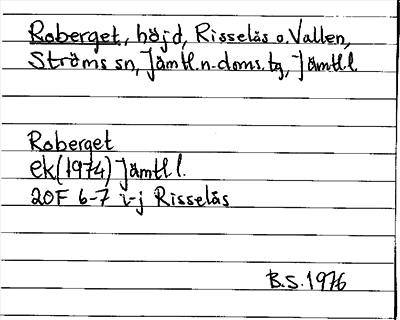 Roberget, höjd, Risselås o. Vallen,
Ströms sn, Jämtl. n. doms. tg, Jämtl. l.
Roberget
ek (1974) Jämtl l.
20F 6-7 i-j Risselås
B.S. 1976